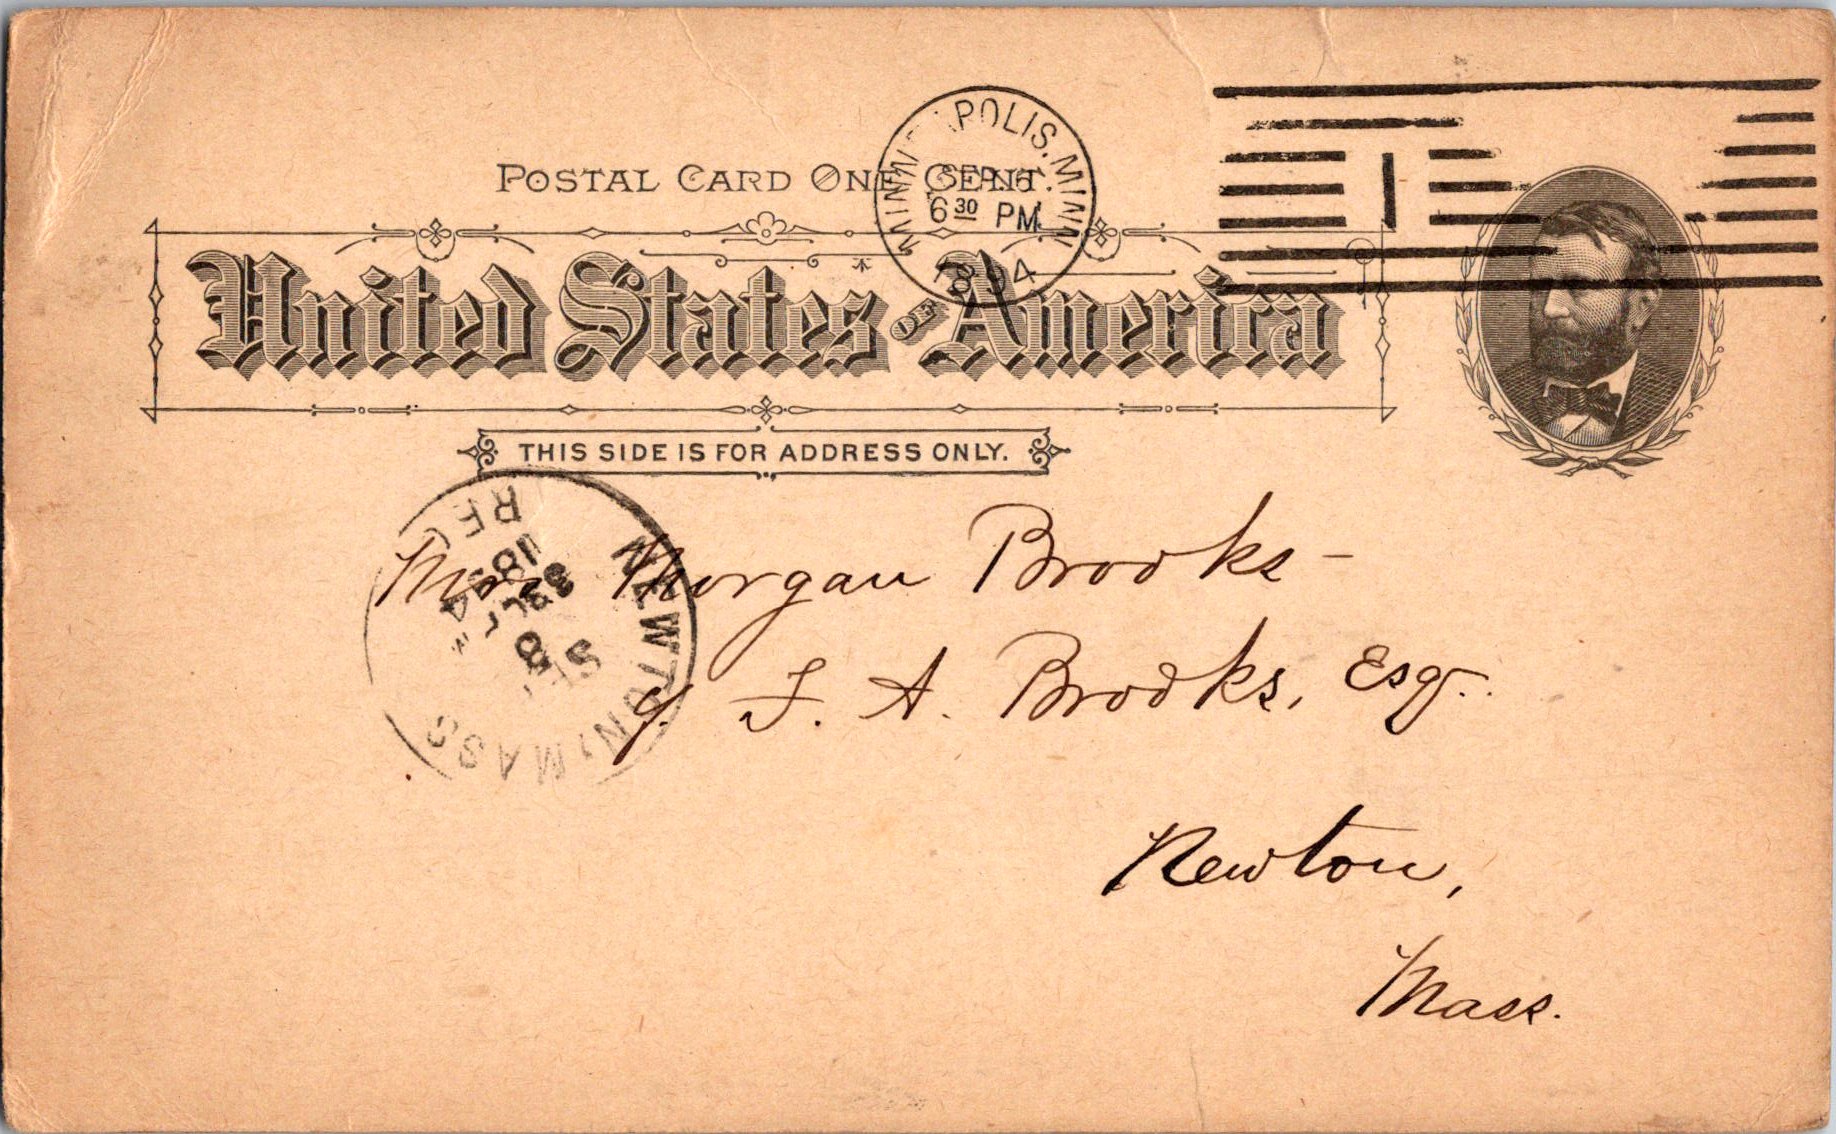 POSTAL CARD ONE CENT.
United States OF America
THIS SIDE IS FOR ADDRESS ONLY.
MINNEAPOLIS. MINN
SEP. 6
6 30 PM
1894
1
NEWTON, MASS
SEP
8
1894
REC'D
Mrs Morgan Brooks -
℅ F. A. Brooks, Esq.
Newton,
Mass.